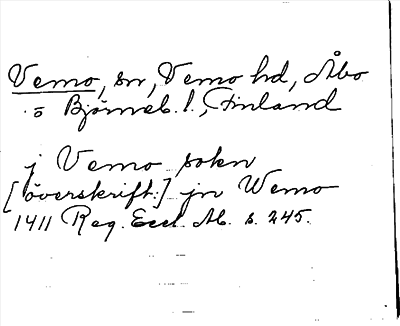 Vemo, sn, Vemo hd, Åbo
o Björneb. l., Finland
j Vemo sokn
[överskrift:] jn Wemo
1411 Reg. Eccl. Ab. s. 245.